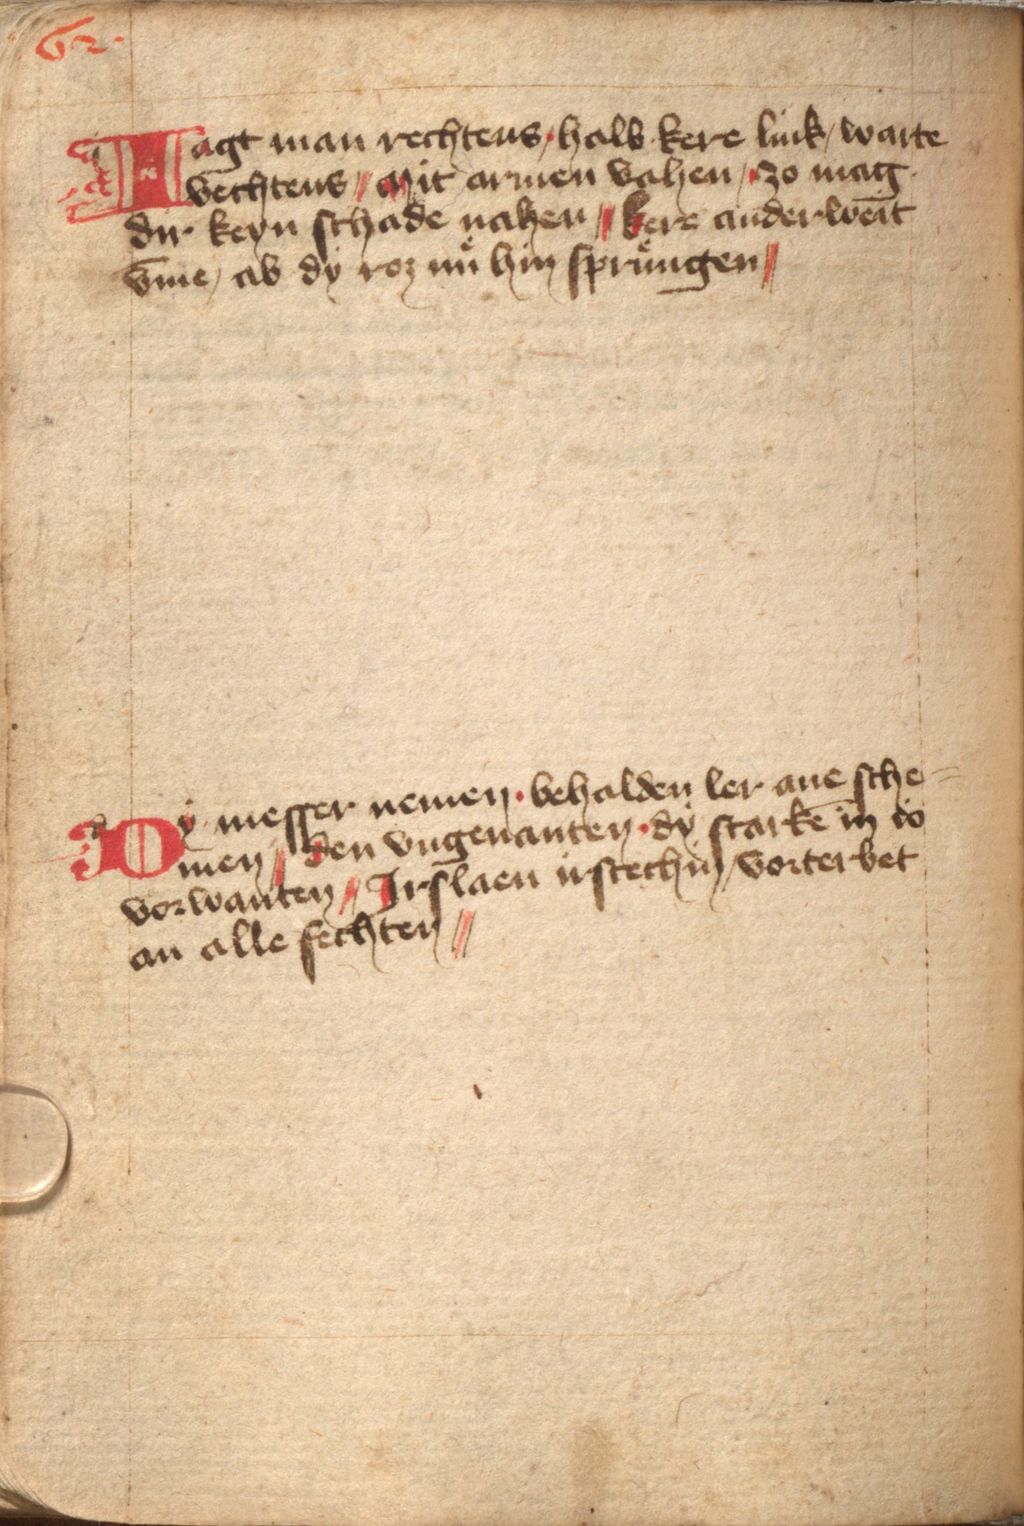 62.
Jagt man rechtens, halb kere link, warte
vechtens // Mit armen vahen, zo mag
dir keyn schade nahen // kere anderweit
v̄me, ab dy roz nuͤ hin spruͤngen //
Dy messer nemen · behalden ler ane sche=
men // den vngenanten · dy starkē in do
vorwanten // Irslaen irstechin, vorterbet
an alle fechten //